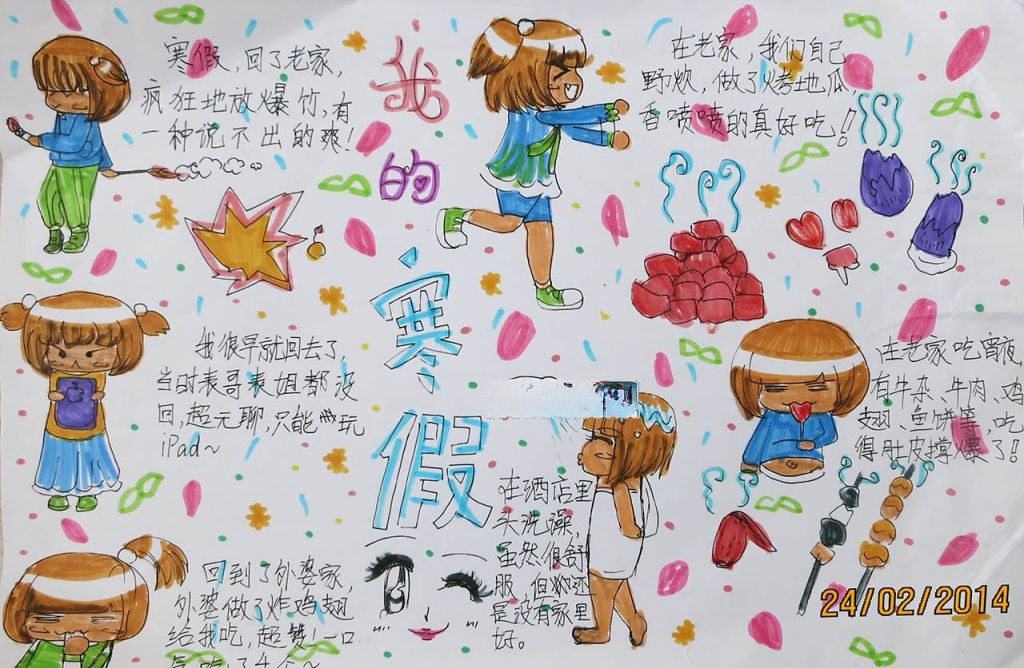 我
的
寒
假
寒假,回了老家,
疯狂地放爆竹,有
一种说不出的爽!
在老家,我们自己
野炊,做了烤地瓜,
香喷喷的真好吃!!
我很早就回去了,
当时表哥表姐都没
回,超无聊,只能玩
iPad~
在老家吃宵夜,
有牛杂、牛肉、鸡
翅、鱼饼等,吃
得肚皮撑爆了!!
回到了外婆家,
外婆做了炸鸡翅
给我吃,超赞!一口
气吃了4个~
在酒店里
头洗澡,
虽然很舒
服,但还
是没有家里
好。
24/02/2014